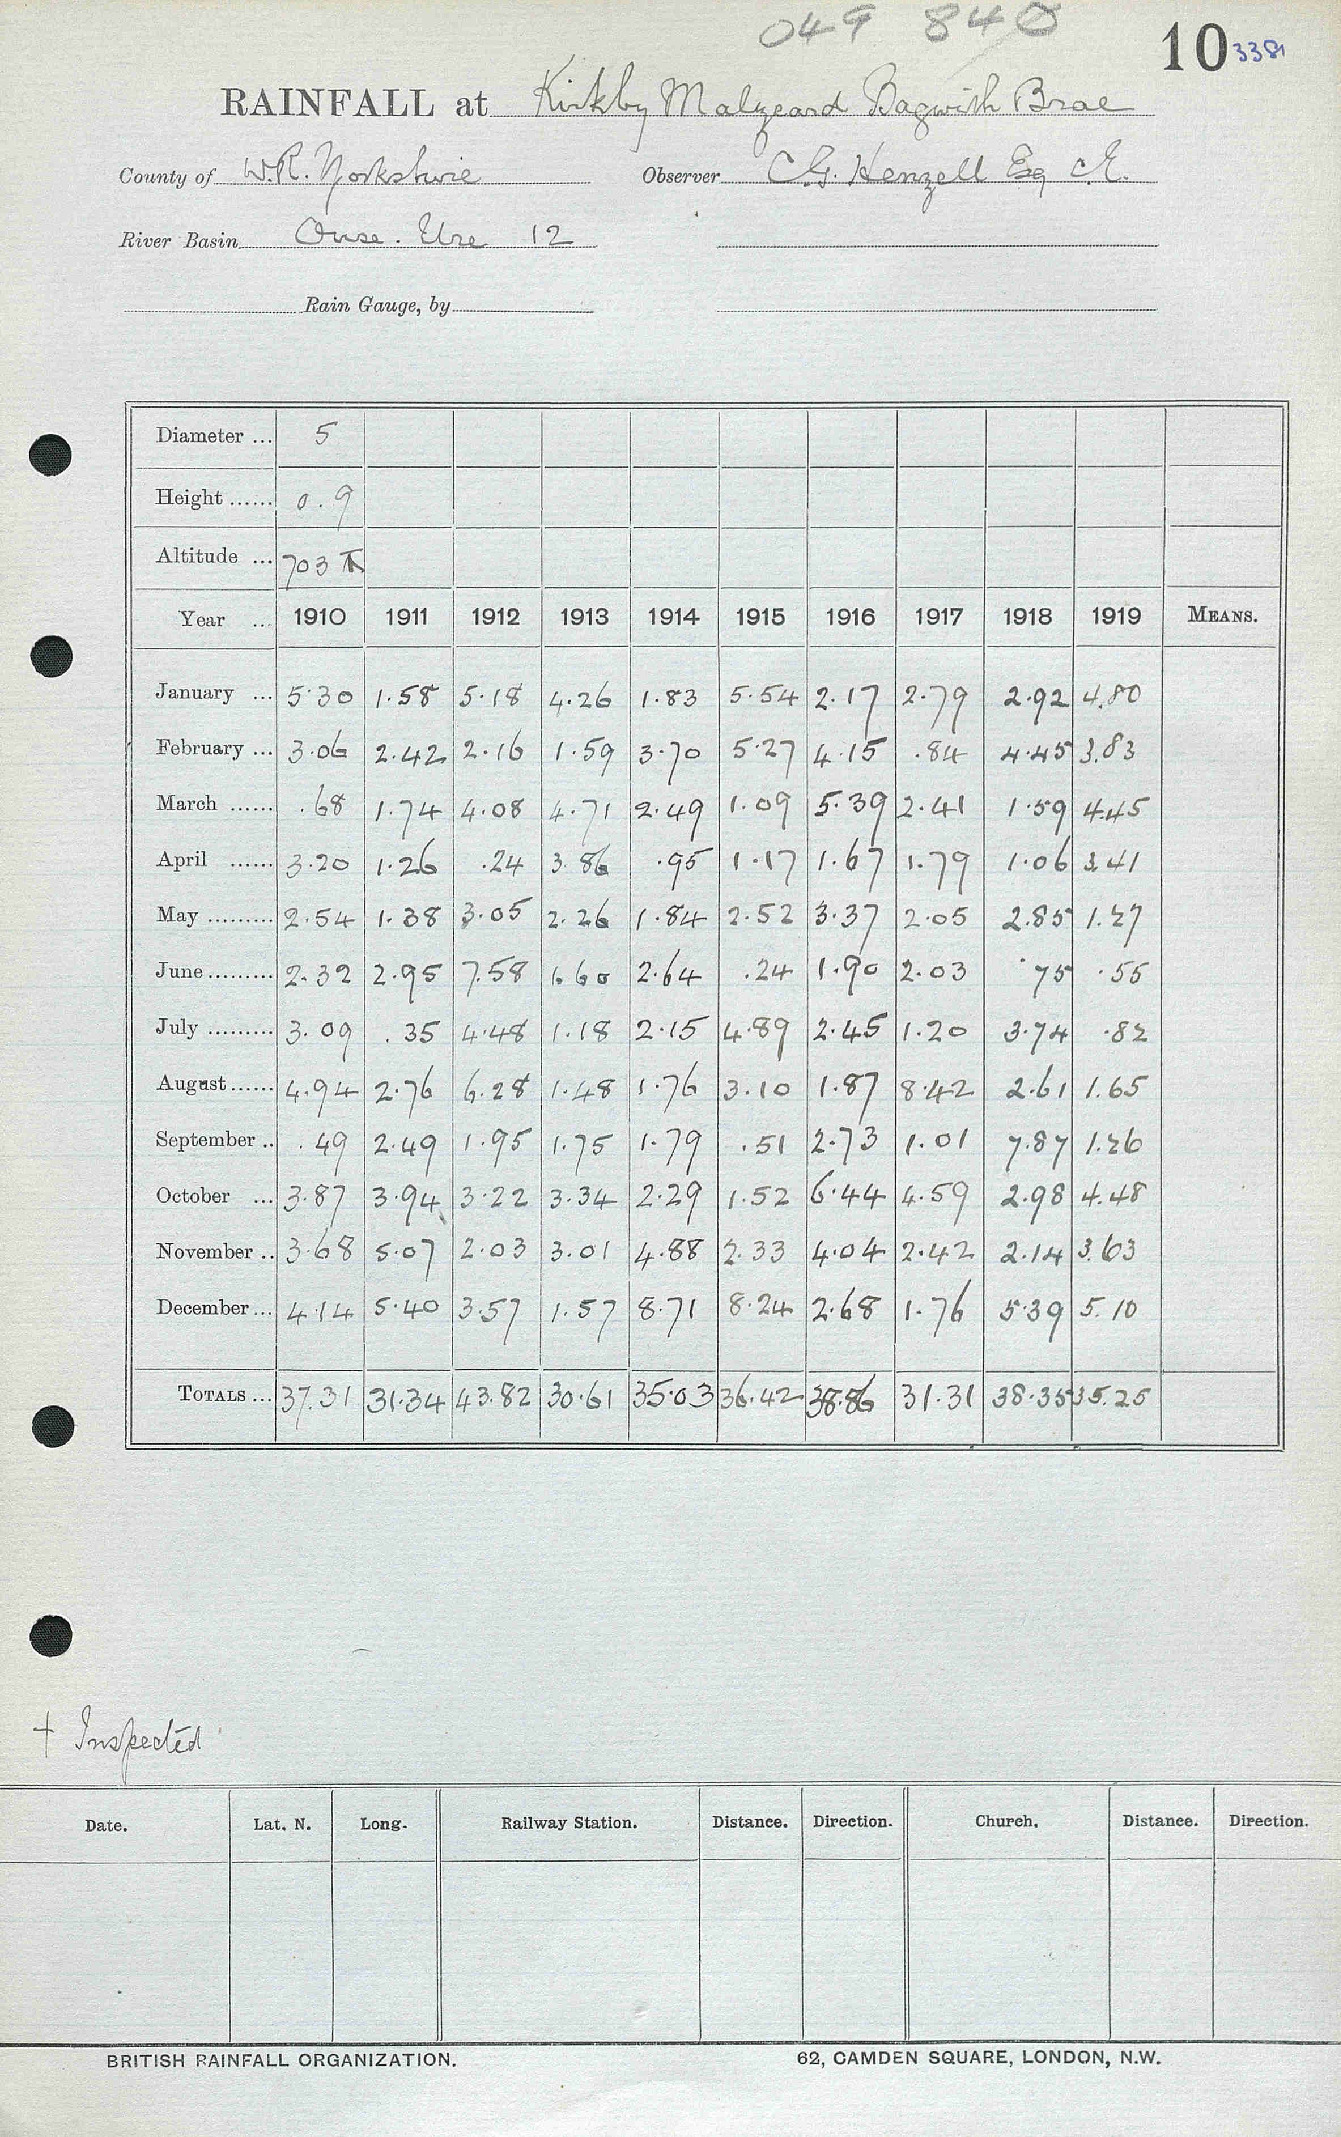 049 840
10 3381
RAINFALL at Kirkby Malzeard Dagwith Brae
County of W.R. Yorkshire Observer C.G. Henzell Esq C.E.
River Basin Ouse. Ure 12
Rain Gauge, by
Diameter ... 5
Height ...... 0.9
Altitude ... 703
Year ... 1910 1911 1912 1913 1914 1915 1916 1917 1918 1919 MEANS.
January ... 5.30 1.58 5.18 4.26 1.83 5.54 2.17 2.79 2.92 4.80
February ... 3.06 2.42 2.16 1.59 3.70 5.27 4.15 .84 4.45 3.83
March ...... .68 1.74 4.08 4.71 2.49 1.09 5.39 2.41 1.59 4.45
April ...... 3.20 1.26 .24 3.86 .95 1.17 1.67 1.79 1.06 3.41
May ......... 2.54 1.38 3.05 2.26 1.84 2.52 3.37 2.05 2.85 1.27
June ......... 2.32 2.95 7.58 1.60 2.64 .24 1.90 2.03 .75 .55
July ......... 3.09 .35 4.48 1.18 2.15 4.89 2.45 1.20 3.74 .82
August ...... 4.94 2.76 6.28 1.48 1.76 3.10 1.87 8.42 2.61 1.65
September .. .49 2.49 1.95 1.75 1.79 .51 2.73 1.01 7.87 1.26
October ... 3.87 3.94 3.22 3.34 2.29 1.52 6.44 4.59 2.98 4.48
November .. 3.68 5.07 2.03 3.01 4.88 2.33 4.04 2.42 2.14 3.63
December ... 4.14 5.40 3.57 1.57 8.71 8.24 2.68 1.76 5.39 5.10
TOTALS ... 37.31 31.34 43.82 30.61 35.03 36.42 38.86 31.31 38.35 35.25
+ Inspected
Date. Lat. N. Long. Railway Station. Distance. Direction. Church. Distance. Direction.
BRITISH RAINFALL ORGANIZATION. 62, CAMDEN SQUARE, LONDON, N.W.